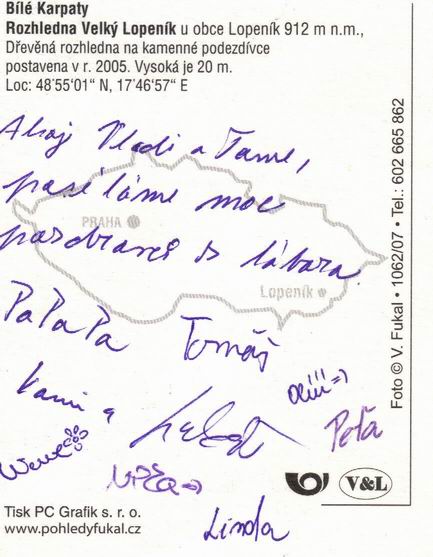 Bílé Karpaty
Rozhledna Velký Lopeník u obce Lopeník 912 m n.m.,
Dřevěná rozhledna na kamenné podezdívce
postavena v r. 2005. Vysoká je 20 m.
Loc: 48°55'01" N, 17°46'57" E
Ahoj a
moc
PRAHA
z tábora
Lopeník
PaPaPa Tomáš
a
Peťa
Linda
V&L
Tisk PC Grafik s. r. o.
www.pohledyfukal.cz
Foto © V. Fukal • 1062/07 • Tel.: 602 665 862